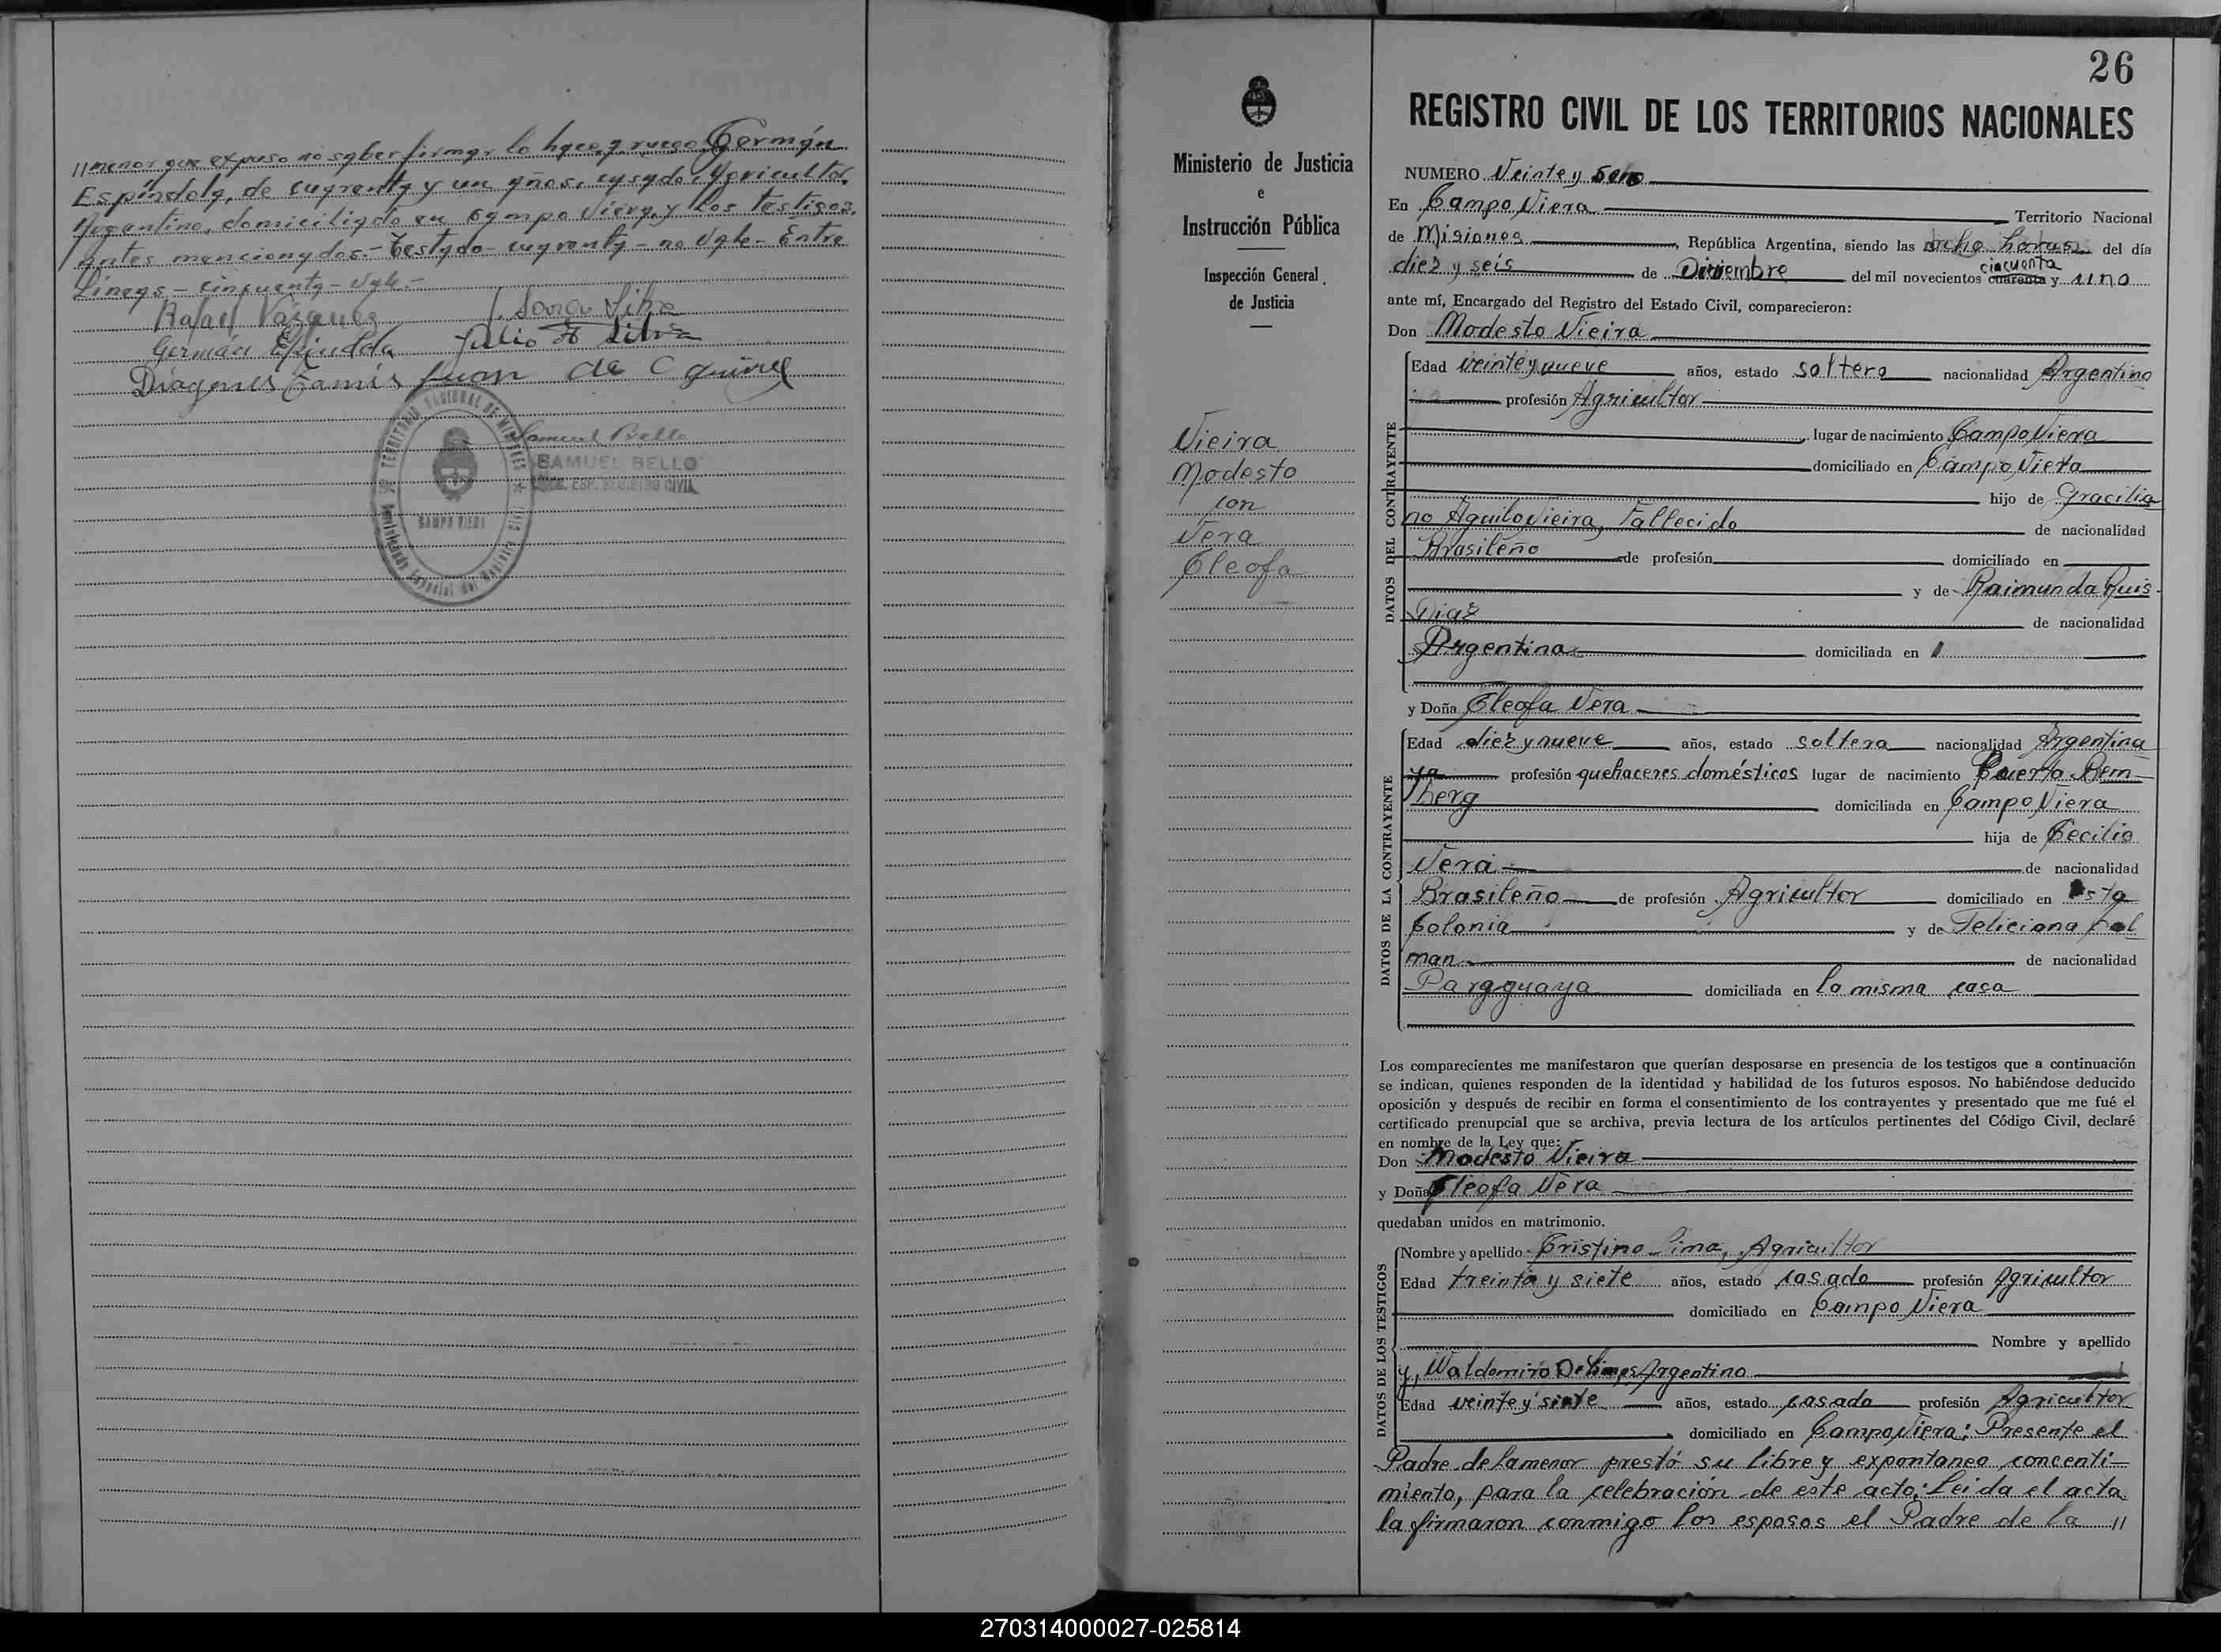 //menor que expuso no saber firmar lo hace a ruego Germán
Espíndola, de cuarenta y un años, casado, Agricultor,
Argentino, domiciliado en Campo Viera, y los testigos.
antes mencionados.- Testado- cuarenta - no Vale- Entre
Lineas - cincuenta - Vale.-
Rafael Vázquez
Germán Espindola Julio Silva
Diogenes Juan de
TERRITORIO NACIONAL DE MISIONES
CAMPO VIERA
Samuel Bello
SAMUEL BELLO
ESP. REGISTRO CIVIL
26
Ministerio de Justicia
e
Instrucción Pública
Inspección General
de Justicia
Vieira
Modesto
con
Vera
Cleofa
REGISTRO CIVIL DE LOS TERRITORIOS NACIONALES
NUMERO Veinte y seis
En Campo Viera Territorio Nacional
de Misiones, República Argentina, siendo las ocho horas del día
diez y seis de Diciembre del mil novecientos cuarenta cincuenta y uno
ante mí, Encargado del Registro del Estado Civil, comparecieron:
Don Modesto Vieira
DATOS DEL CONTRAYENTE
Edad veinte y nueve años, estado soltero nacionalidad Argentino
profesión Agricultor
lugar de nacimiento Campo Viera
domiciliado en Campo Viera
hijo de Gracilia
no Aguilo Vieira, Fallecido de nacionalidad
Brasileño de profesión domiciliado en
y de Raimunda Ruis
Diaz de nacionalidad
Argentina domiciliada en
y Doña Cleofa Vera
DATOS DE LA CONTRAYENTE
Edad diez y nueve años, estado soltera nacionalidad Argentina
profesión quehaceres domésticos lugar de nacimiento Puerto Bem
berg domiciliada en Campo Viera
hija de Cecilio
Vera de nacionalidad
Brasileño de profesión Agricultor domiciliado en Esta
Colonia y de Feliciana Col
man de nacionalidad
Paraguaya domiciliada en la misma casa
Los comparecientes me manifestaron que querían desposarse en presencia de los testigos que a continuación
se indican, quienes responden de la identidad y habilidad de los futuros esposos. No habiéndose deducido
oposición y después de recibir en forma el consentimiento de los contrayentes y presentado que me fué el
certificado prenupcial que se archiva, previa lectura de los artículos pertinentes del Código Civil, declaré
en nombre de la Ley que:
Don Modesto Vieira
y Doña Cleofa Vera
quedaban unidos en matrimonio.
DATOS DE LOS TESTIGOS
Nombre y apellido Cristino Lima, Agricultor
Edad treinta y siete años, estado casado profesión Agricultor
domiciliado en Campo Viera
Nombre y apellido
y, Waldomiro Argentino
Edad veinte y siete años, estado casado profesión Agricultor
domiciliado en Campo Viera: Presente el
Padre de la menor prestó su libre y expontaneo concenti-
miento, para la celebración de este acto: Leida el acta
la firmaron conmigo los esposos el Padre de la //
270314000027-025814